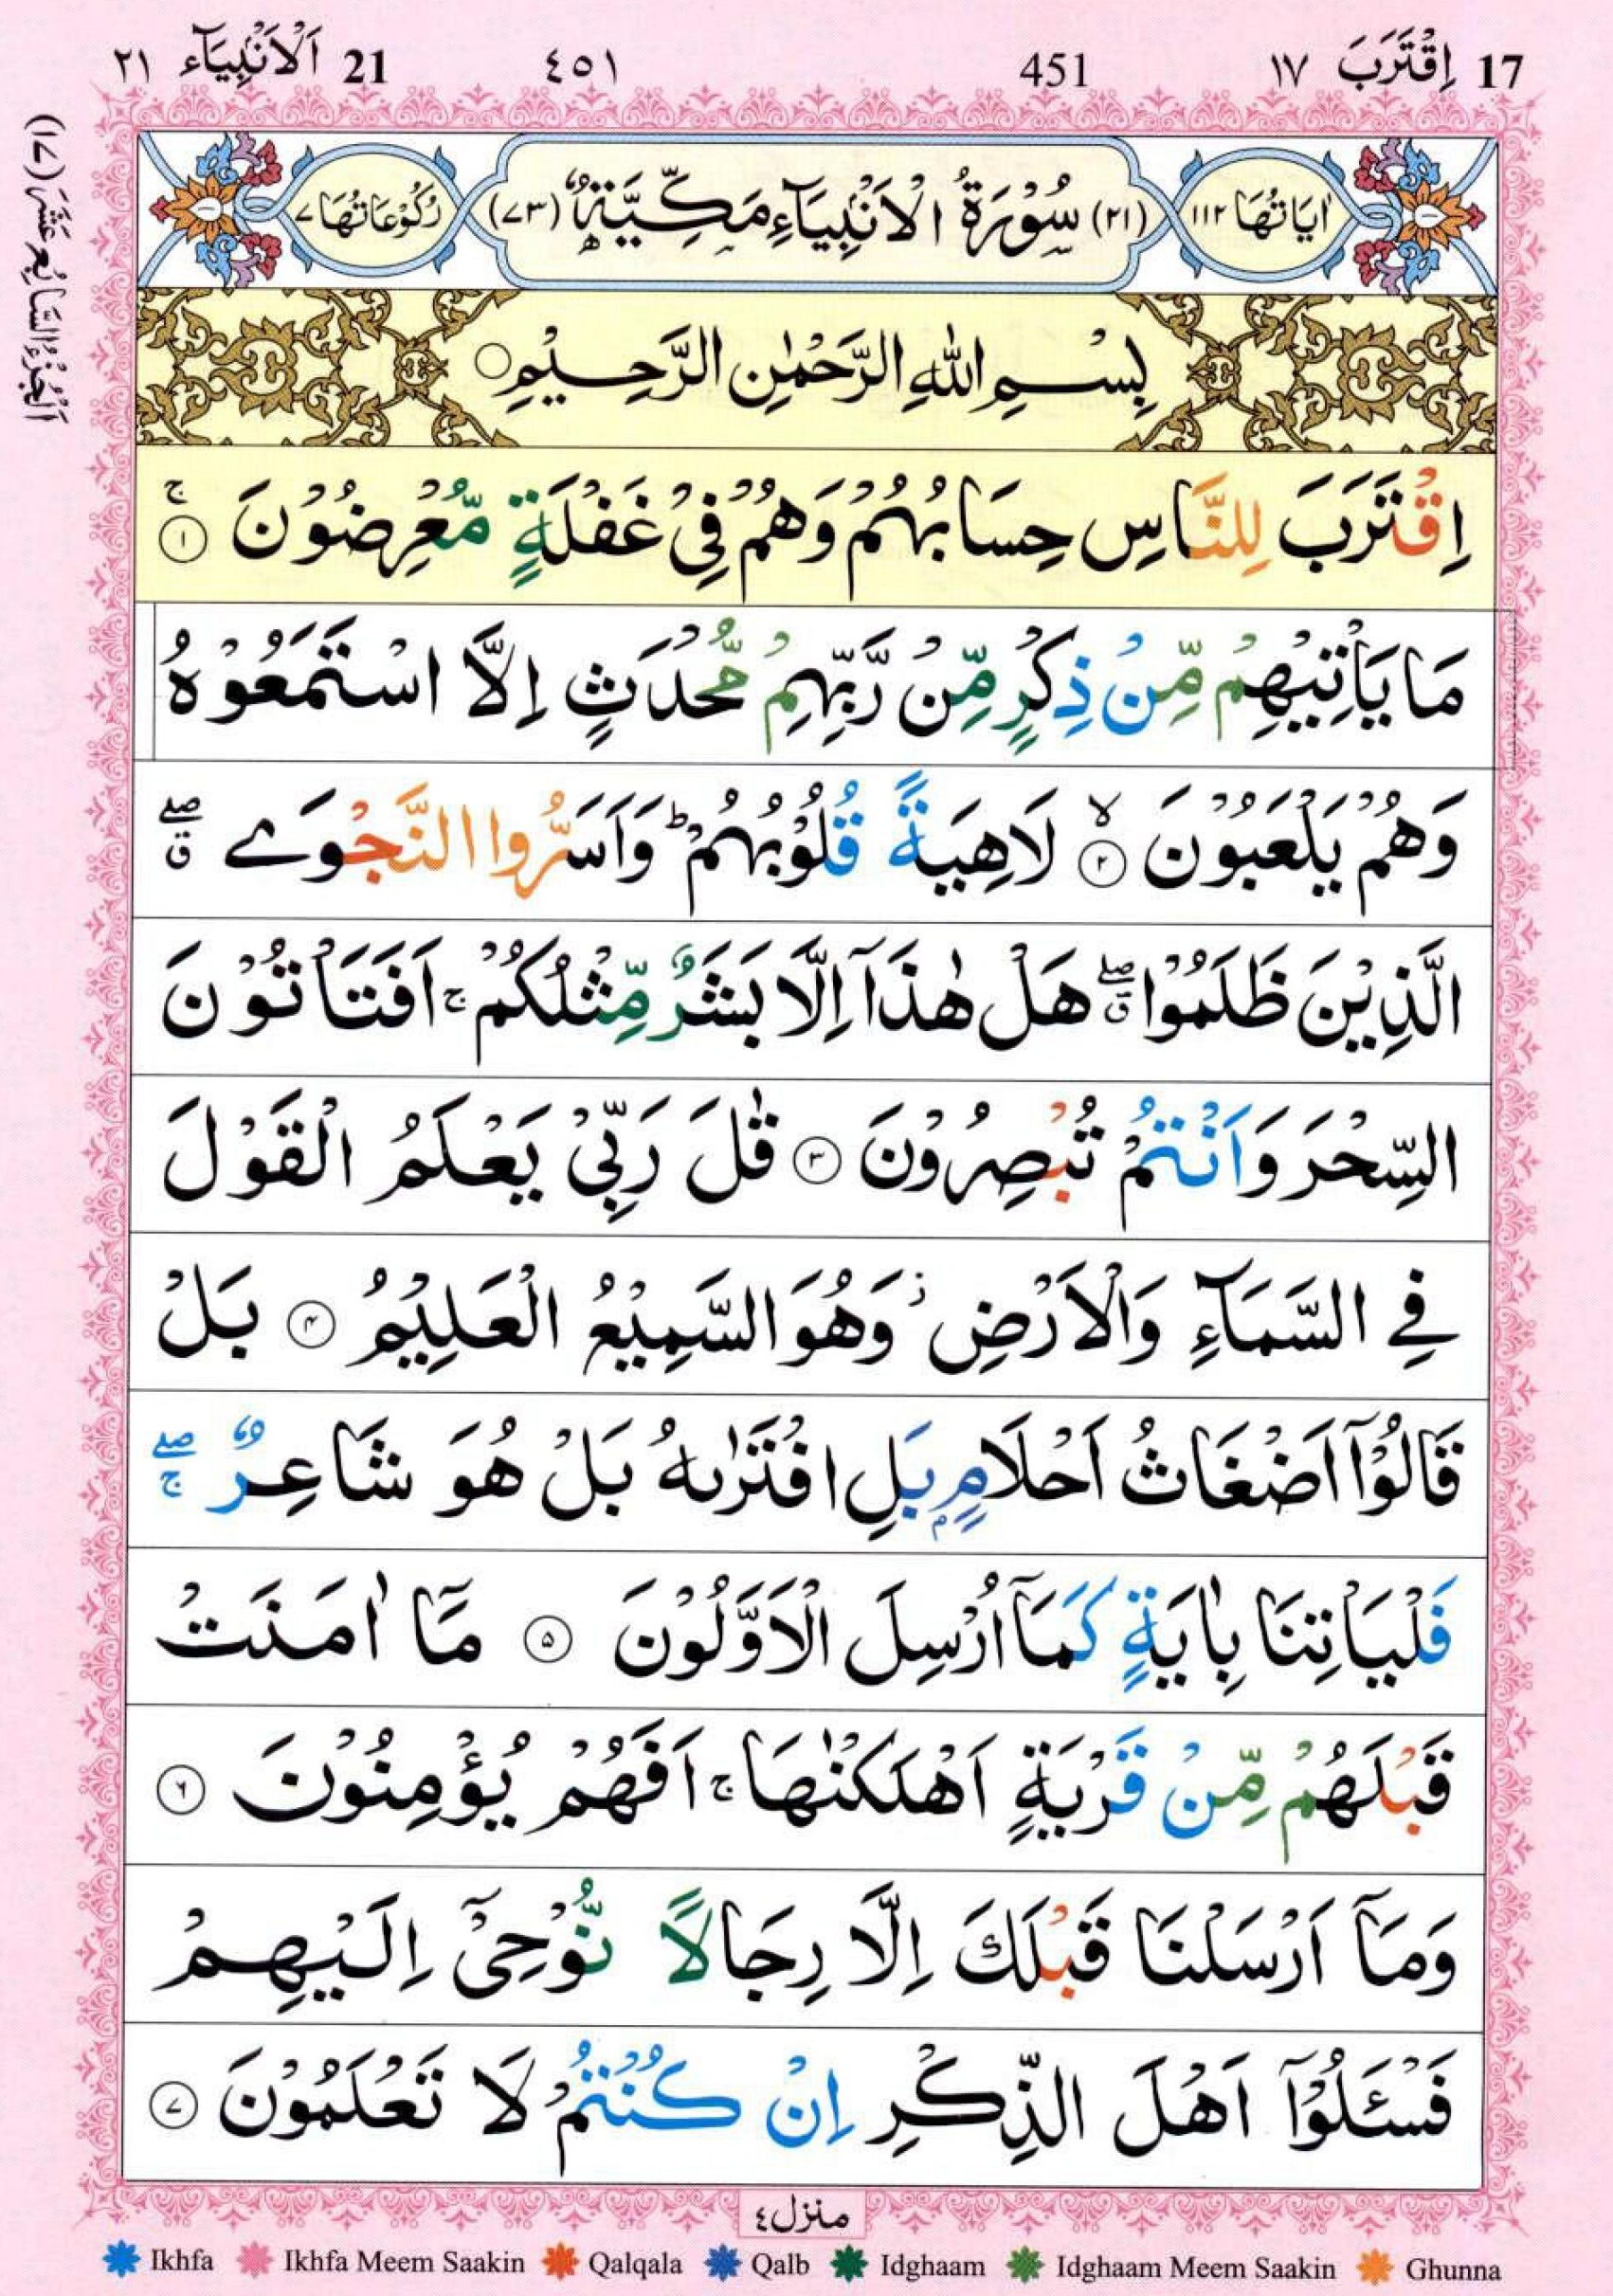 17 اِقْتَرَبَ ١٧ 451 ٤٥١ 21 اَلْاَنْۢبِيَآء ٢١
اَلْجُزْءُ السَّابِعَ عَشَرَ (١٧)
اٰيَاتُهَا ١١٢ (٢١) سُوْرَةُ الْاَنْۢبِيَآءِ مَكِّيَّةٌ (٧٣) رُكُوْعَاتُهَا ٧
بِسْمِ اللّٰهِ الرَّحْمٰنِ الرَّحِيْمِ
اِقْتَرَبَ لِلنَّاسِ حِسَابُهُمْ وَهُمْ فِيْ غَفْلَةٍ مُّعْرِضُوْنَ ۚ ١
مَا يَاْتِيْهِمْ مِّنْ ذِكْرٍ مِّنْ رَّبِّهِمْ مُّحْدَثٍ اِلَّا اسْتَمَعُوْهُ
وَهُمْ يَلْعَبُوْنَ ۙ ٢ لَاهِيَةً قُلُوْبُهُمْ ؕ وَاَسَرُّوا النَّجْوَے ۖۗ
الَّذِيْنَ ظَلَمُوْا ۖۗ هَلْ هٰذَآ اِلَّا بَشَرٌ مِّثْلُكُمْ ۚ اَفَتَاْتُوْنَ
السِّحْرَ وَاَنْتُمْ تُبْصِرُوْنَ ٣ قٰلَ رَبِّيْ يَعْلَمُ الْقَوْلَ
فِي السَّمَآءِ وَالْاَرْضِ ؗ وَهُوَ السَّمِيْعُ الْعَلِيْمُ ٤ بَلْ
قَالُوْٓا اَضْغَاثُ اَحْلَامٍۭ بَلِ افْتَرٰىهُ بَلْ هُوَ شَاعِرٌ ۖۚ
فَلْيَاْتِنَا بِاٰيَةٍ كَمَآ اُرْسِلَ الْاَوَّلُوْنَ ٥ مَآ اٰمَنَتْ
قَبْلَهُمْ مِّنْ قَرْيَةٍ اَهْلَكْنٰهَا ۚ اَفَهُمْ يُؤْمِنُوْنَ ٦
وَمَآ اَرْسَلْنَا قَبْلَكَ اِلَّا رِجَالًا نُّوْحِيْٓ اِلَيْهِمْ
فَسْـَٔلُوْٓا اَهْلَ الذِّكْرِ اِنْ كُنْتُمْ لَا تَعْلَمُوْنَ ٧
منزل ٤
Ikhfa Ikhfa Meem Saakin Qalqala Qalb Idghaam Idghaam Meem Saakin Ghunna